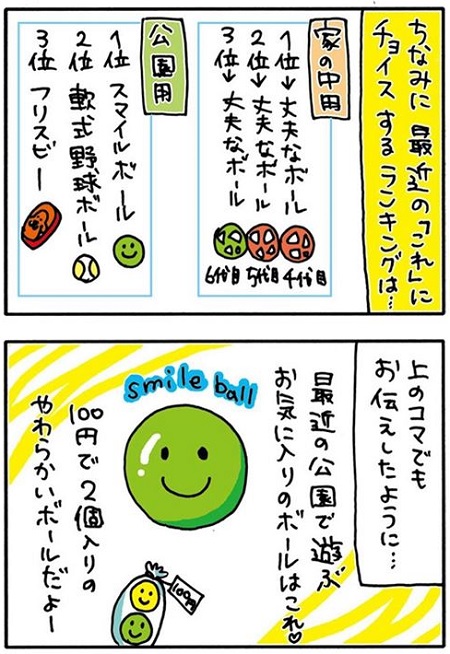 ちなみに最近の「これ」に
チョイスするランキングは…
家の中用
1位→丈夫なボール
2位→丈夫なボール
3位→丈夫なボール
4代目
5代目
6代目
公園用
1位 スマイルボール
2位 軟式野球ボール
3位 フリスビー
上のコマでも
お伝えしたように…
最近の公園で遊ぶ
お気に入りのボールはこれ♡
smile ball
100円で2個入りの
やわらかいボールだよー
100円